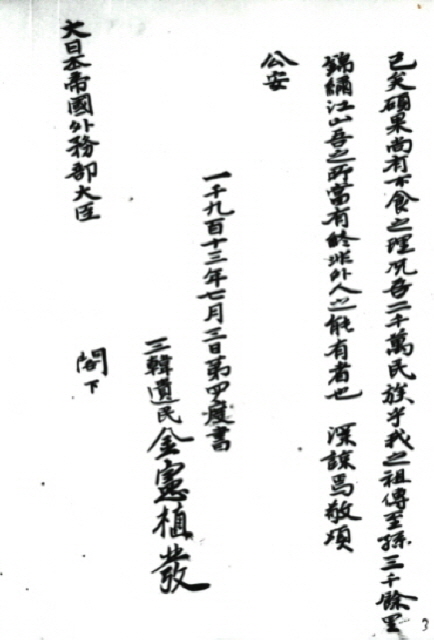 已矣碩果尚有不食之理況吾二千萬民族乎我之祖傳至孫三千餘里
錦繡江山吾之所當有終非外人之能有者也 深諒焉敬頌
公安
一千九百十三年七月三日第四度書
三韓遺民金憲植發
大日本帝國外務部大臣
閣下
3